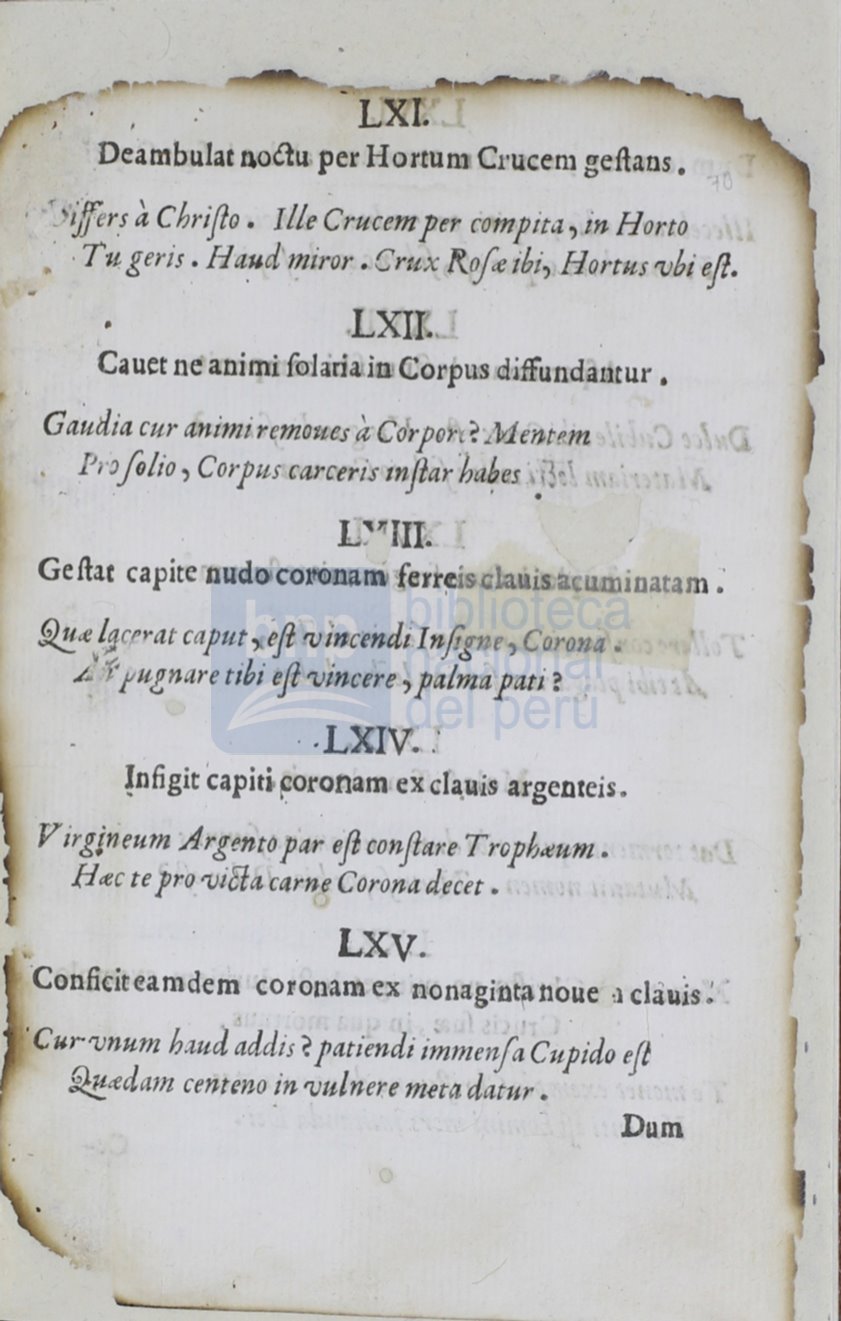 LXI.
Deambulat noctu per Hortum Crucem geſtans.
70
à Chriſto. Ille Crucem per compita, in Horto
Tu geris. Haud miror. Crux Roſæ ibi, Hortus vbi eſt.
LXII.
Cauet ne animi ſolatia in Corpus diffundantur.
Gaudia cur animi remoues à Corpore? Mentem
Pro ſolio, Corpus carceris inſtar habes
LXIII.
Geſtat capite nudo coronam ferreis clauis acuminatam.
Quæ lacerat caput, eſt vincendi Inſigne, Corona.
pugnare tibi eſt vincere, palma pati?
LXIV.
Infigit capiti coronam ex clauis argenteis.
Virgineum Argento par eſt conſtare Trophæum.
Hæc te pro victa carne Corona decet.
LXV.
Conficit eamdem coronam ex nonaginta noue clauis.
Cur vnum haud addis? patiendi immenſa Cupido eſt
Quædam centeno in vulnere meta datur.
Dum
bnp
biblioteca
nacional
del perú